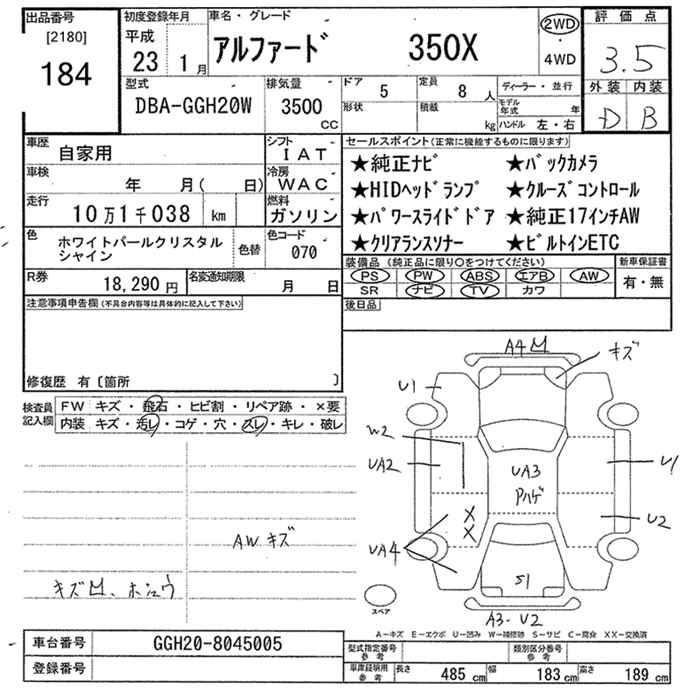 出品番号
[2180]
184
初度登録年月
平成
23 1月
車名・グレード
アルファード 350X
2WD
・
4WD
評価点
3.5
外装 内装
D B
型式
DBA-GGH20W
排気量
3500
CC
ドア
5
定員
8人
形状
積載
kg
ディーラー・並行
モデル年式 年
ハンドル 左・右
車歴
自家用
シフト
IAT
車検
年 月( 日)
冷房
WAC
走行
10万1千038 km
燃料
ガソリン
色
ホワイトパールクリスタル
シャイン
色替
色コード
070
R券
18,290円
名変通知期限
月 日
セールスポイント(正常に機能するものに限ります)
★純正ナビ ★バックカメラ
★HIDヘッドランプ ★クルーズコントロール
★パワースライドドア ★純正17インチAW
★クリアランスソナー ★ビルトインETC
装備品(純正品に限り○をつけてください)
PS PW ABS エアB AW
SR ナビ TV カワ
新車保証書
有・無
後日品
注意事項申告欄(不具合内容等は具体的に記入して下さい)
修復歴 有〔箇所 〕
検査員
記入欄
FW キズ・飛石・ヒビ割・リペア跡・×要
内装 キズ・汚レ・コゲ・穴・スレ・キレ・破レ
AWキズ
キズM、ホシュウ
A4 M
キズ
U1
W2
UA2
UA3
Pハゲ
U1
U2
X
X
UA4
S1
A3・U2
スペア
A−キズ E−エクボ U−凹み W−補修跡 S−サビ C−腐食 XX−交換済
車台番号
GGH20-8045005
登録番号
型式指定番号
参考
類別区分番号
参考
車庫証明用
参考
長さ 485 cm 幅 183 cm 高さ 189 cm